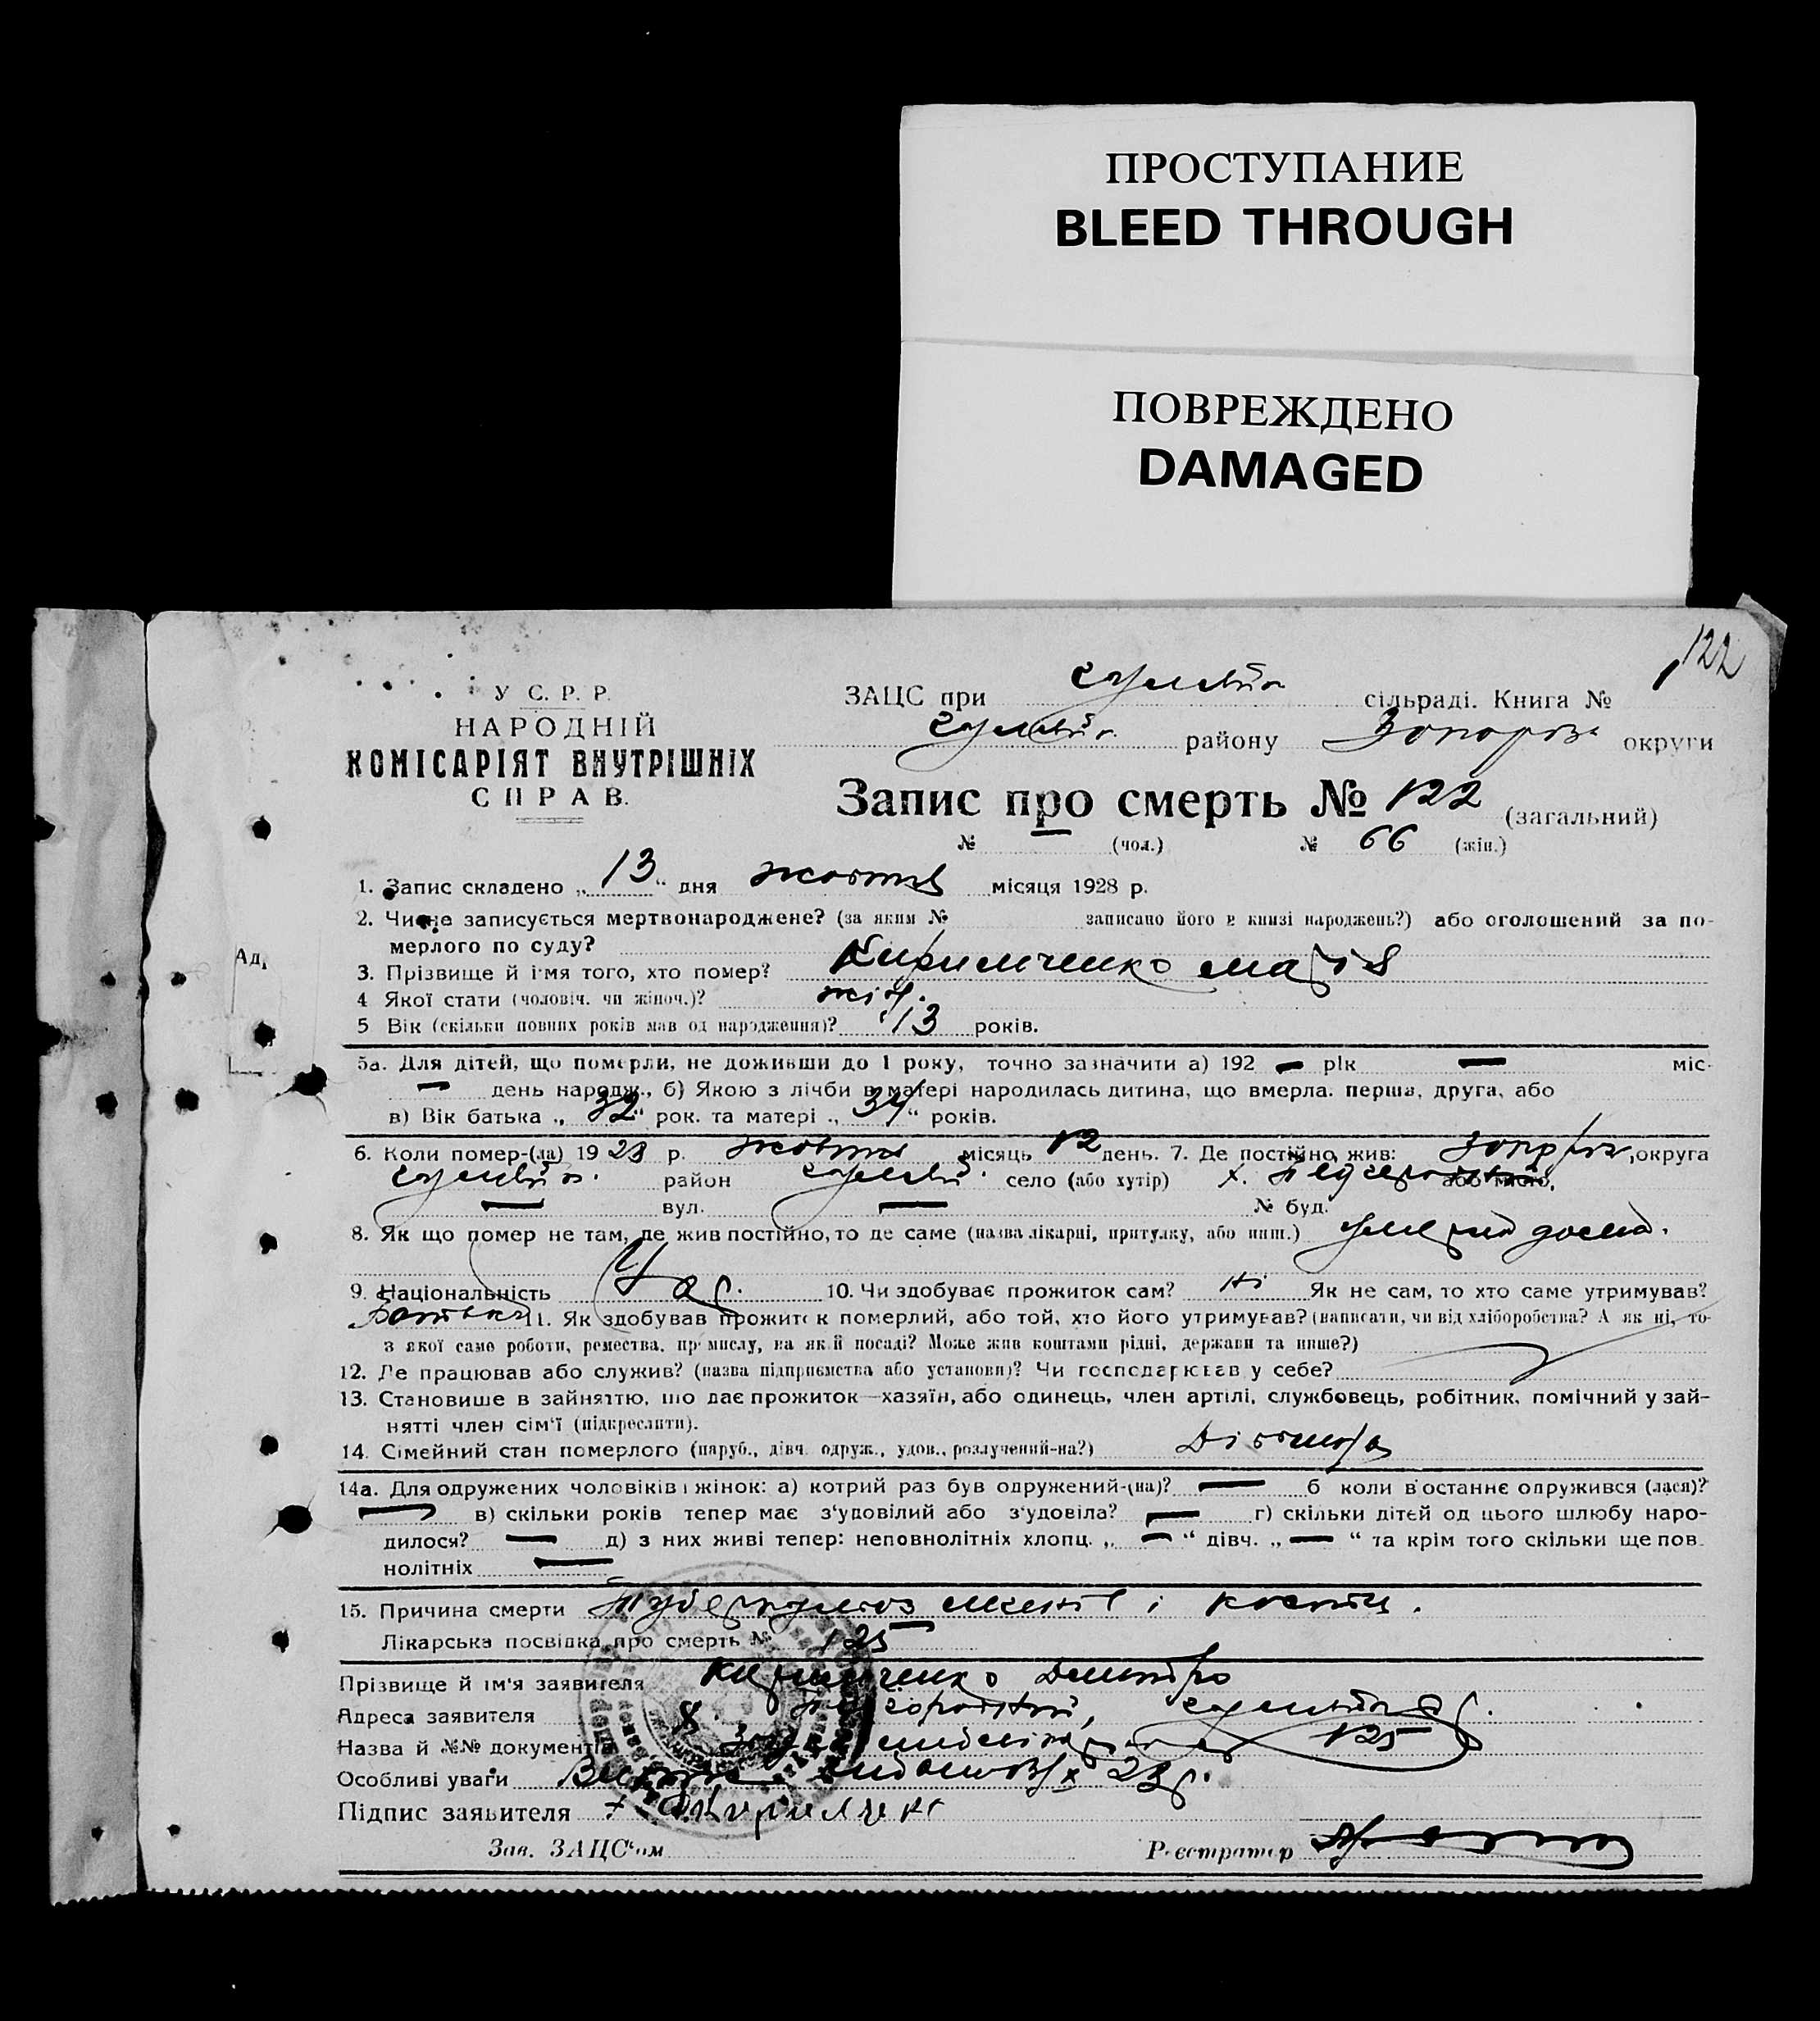 ПРОСТУПАНИЕ
BLEED THROUGH
ПОВРЕЖДЕНО
DAMAGED
122
У С. Р. Р.
НАРОДНІЙ
КОМІСАРІЯТ ВНУТРІШНІХ
СПРАВ.
ЗАЦС при сільраді. Книга №
району округи
Запис про смерть № 122 (загальний)
№ — (чол.) № 66 (жін.)
1. Запис складено „ 13 “ дня жовтня місяця 1928 р.
2. Чи не записується мертвонароджене? (за яким № записано його в книзі народжень?) або оголошений за по-
мерлого по суду?
3. Прізвище й ім'я того, хто помер? Кирильченко Марія
4 Якої стати (чоловіч. чи жіноч.)? жін.
5 Вік (скільки повних років мав од народження)? 13 років.
Ад.
5а. Для дітей, що померли, не доживши до 1 року, точно зазначити а) 192 — рік — міс.
— день народж., б) Якою з лічби в матері народилась дитина, що вмерла. перша, друга, або
в) Вік батька „ 32 “ рок. та матері „ 34 “ років.
6. Коли помер-(ла) 19 28 р. жовтня місяць 12 день. 7. Де постійно жив: округа
район село (або хутір) х. або місто,
— вул. — № буд.
8. Як що помер не там, де жив постійно, то де саме (назва лікарні, притулку, або инш.) дома.
9. Національність Укр. 10. Чи здобуває прожиток сам? ні Як не сам, то хто саме утримував?
Батьки 11. Як здобував прожиток померлий, або той, хто його утримував? (написати, чи від хліборобства? А як ні, то-
з якої саме роботи, ремества, промислу, на якій посаді? Може жив коштами рідні, держави та инше?)
12. Де працював або служив? (назва підприємства або установи)? Чи господарював у себе?
13. Становище в зайняттю, що дає прожиток—хазяїн, або одинець, член артілі, службовець, робітник, помічний у зай-
нятті член сім'ї (підкреслити).
14. Сімейний стан померлого (паруб., дівч. одруж., удов., розлучений-на?)
14а. Для одружених чоловіків і жінок: а) котрий раз був одружений-(на)? — б коли в останнє одружився (лася)?
— в) скільки років тепер має з'удовілий або з'удовіла? — г) скільки дітей од цього шлюбу наро-
дилося? — д) з них живі тепер: неповнолітніх хлопц. „ — “ дівч. „ — “ та крім того скільки ще пов.
нолітніх —
15. Причина смерти Туберкульоз і
Лікарська посвідка про смерть № 125
Прізвище й ім'я заявителя Кирильченко Дмитро
Адреса заявителя х.
Назва й №№ документів 125
Особливі уваги 28 р.
Підпис заявителя
Зав. ЗАЦС'ом Реєстратор